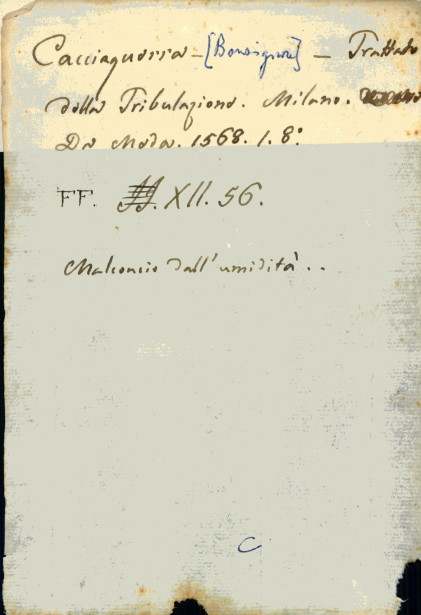 Cacciaguerra - [Bonsignore] - Trattato
della Tribulazione. Milano.
Da Meda. 1568. 1. 8.º
FF. XII. 56.
Malconcio dall'umidità..
C